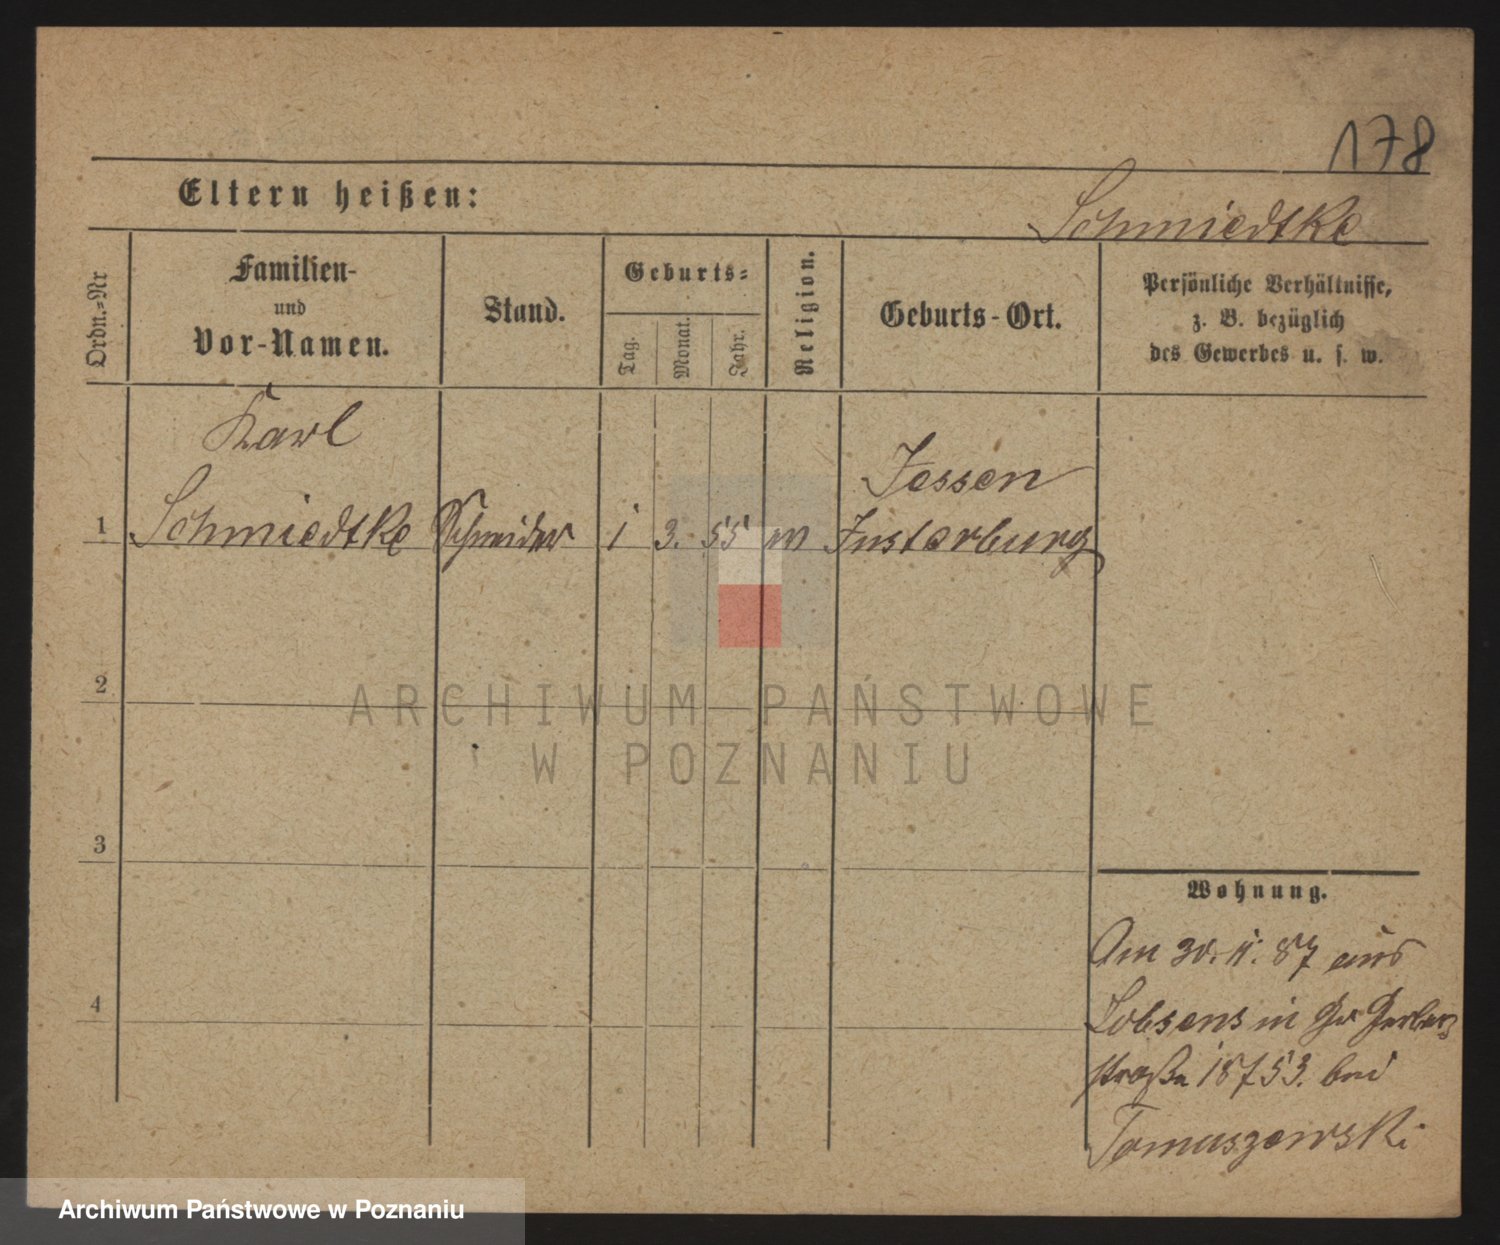 178
Eltern heißen:
Schmiedtke
Ordn.=Nr
Familien-
und
Vor-Namen.
Stand.
Geburts=
Tag.
Monat.
Jahr.
Religion.
Geburts-Ort.
Persönliche Verhältnisse,
z. B. bezüglich
des Gewerbes u. s. w.
Karl
Jessen
1 Schmiedtke Schneider 1 3. 55 Insterburg
2
ARCHIWUM PAŃSTWOWE
W POZNANIU
3
Wohnung.
Am 30. 11. 87 aus
4
Lobsens in Gr Gerber
straße 18 753. bei
Tomaszewski
Archiwum Państwowe w Poznaniu